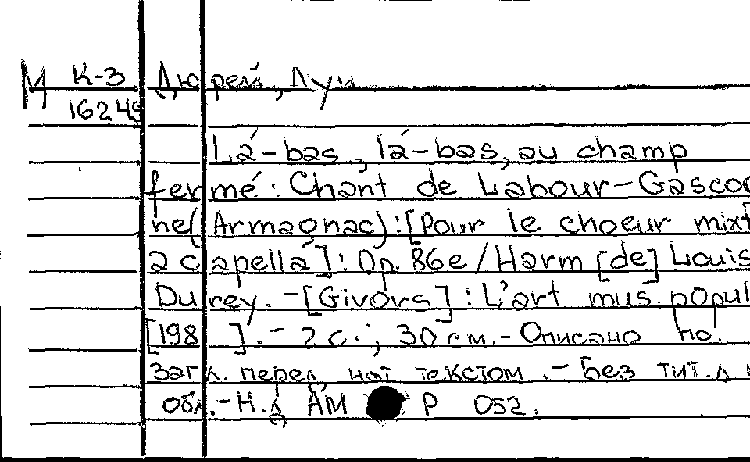 М К-3 Дюрей, Луи
16245
Lá-bas, lá-bas, au champ
fermé: Chant de Labour-Gascon
ne(Armagnac):[Pour le choeur mixt
a capella]: Op. 86e/Harm [de] Louis
Durey. -[Givors]: L'art mus. popul
[198 ]. - 2 с.; 30 см. - Описано по
загл. перед нот текстом. - Без тит. л
обл. - Н.д. АМ Р 052.